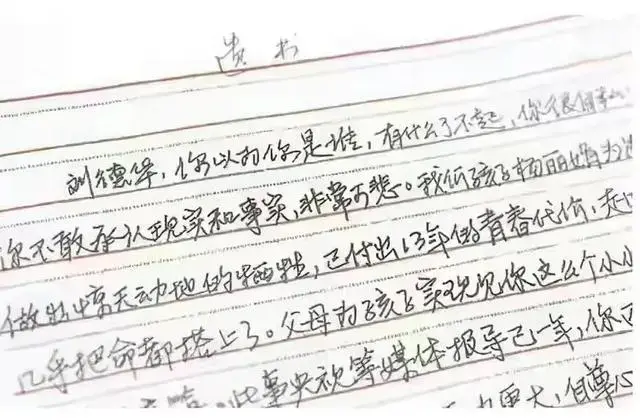 遗书
刘德华,你以为你是谁,有什么了不起,你很自私
你不敢承认现实和事实,非常可悲。我们孩子杨丽娟为
做出惊天动地的牺牲,已付出13年的青春代价,走
几乎把命都搭上了。父母为孩子实现见你这么个小小
此事央视等媒体报导已一年,你
更大,自尊心